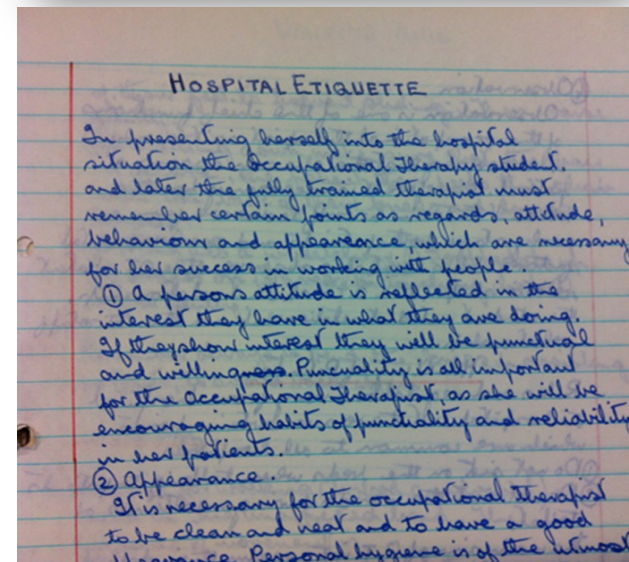 HOSPITAL ETIQUETTE
In presenting herself into the hospital
situation the Occupational Therapy student,
and later the fully trained therapist must
remember certain points as regards, attitude,
behaviour and appearance, which are necessary
for her success in working with people.
① A persons attitude is reflected in the
interest they have in what they are doing.
If they show interest they will be punctual
and willingness. Puncuality is all important
for the Occupational Therapist, as she will be
encouraging habits of punctuality and reliability
in her patients.
② Appearance.
It is necessary for the occupational therapist
to be clean and neat and to have a good
Personal hygiene is of the utmost